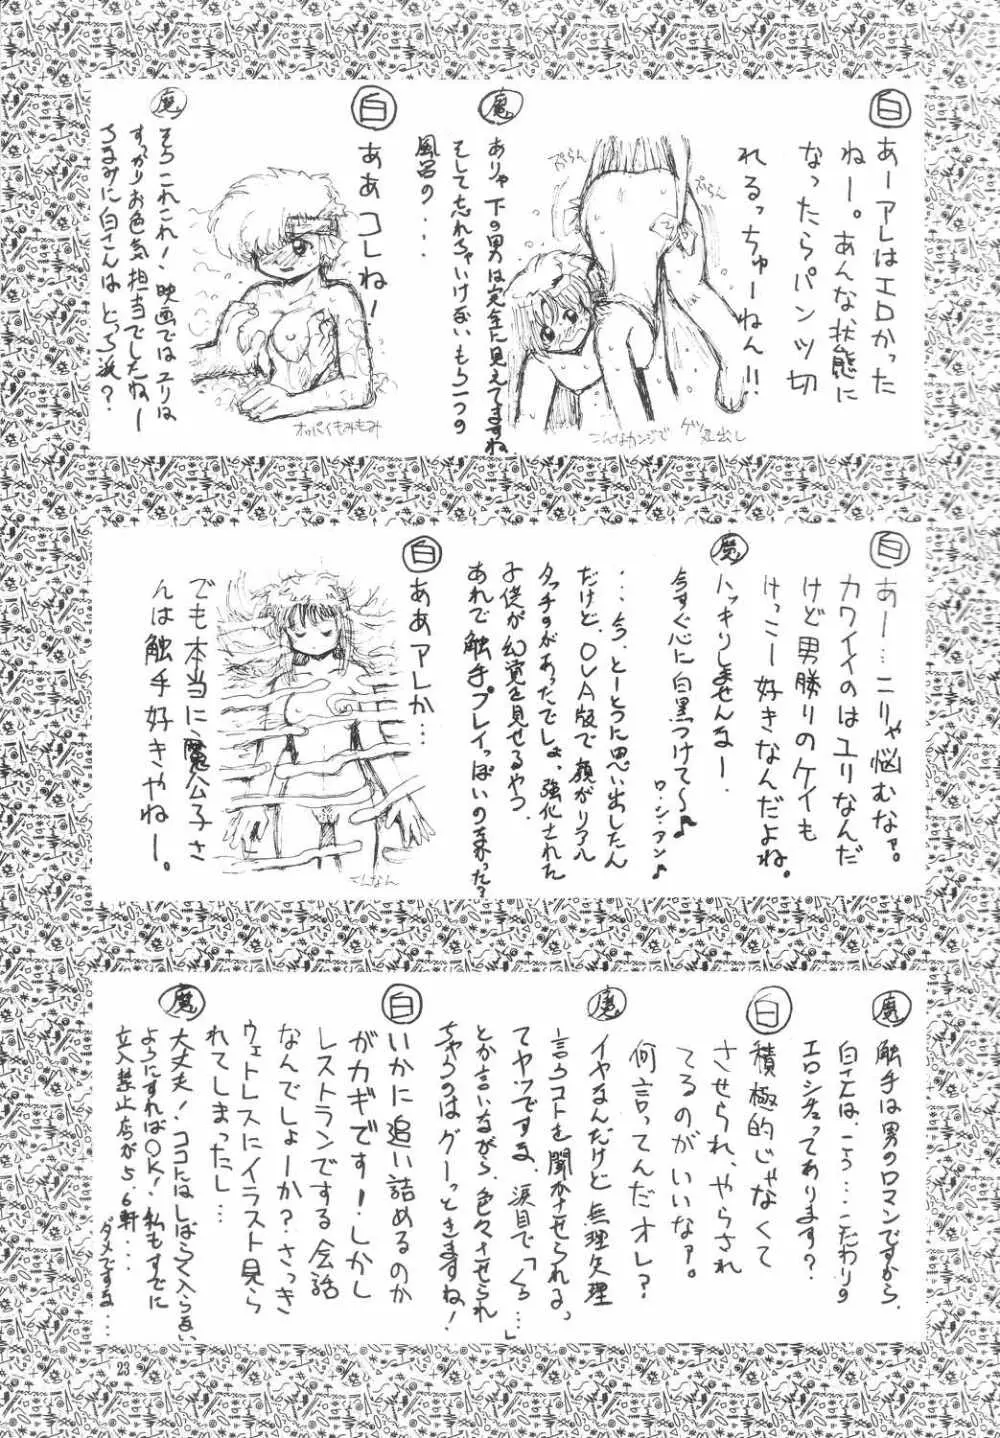 白
あーアレはエロかった
ねー。あんな状態に
なったらパンツ切
れるっちゅーねん!!
ぶらん
ぷらん
こんなカンジで
ゲツ丸出し
魔
ありゃ下の男は完全に見えてますね
そして忘れちゃいけないもう一つの
風呂の...
白
ああコレねー
オッパイもみもみ
魔
そうこれこれ!映画ではユリは
すっかりお色気担当でしたねー
ちなみに白さんはどっち派?
白
あー...ニりゃ悩むなァ。
カワイイのはユリなんだ
けど男勝りのケイも
けっこー好きなんだよね。
魔
ハッキリしませんなー.
今すぐ心に白黒つけて〜♪
ロ・シ・ア・ン♪
...今、とーとつに思い出したん
だけど、OVA版で顔がリアル
タッチのがあったでしょ、強化された
子供が幻覚を見せるやつ、
あれで触手プレイっぽいの来った?
白
ああアレか...
こんなん
でも本当に魔公子さ
んは触手好きやねー。
魔
触手は男のロマンですから、
白さんは、こう...こだわりの
エロシチュってあります?
白
積極的じゃなくて
させられ、やらされ
てるのがいいなァ。
何言ってんだオレ?
魔
イヤなんだけど無理矢理
言うコトを聞かせられる
てヤツですな、涙目で「くっ...」
とか言いながら、色々させられ
ちゃうのはグーっときますね!
白
いかに追い詰めるのか
がカギです!しかし
レストランでする会話
なんでしょーか?さっき
ウェトレスにイラスト見ら
れてしまったし...
魔
大丈夫!ココにはしばらく入らない
ようにすればOK!私もすでに
立入禁止店が5、6軒...
ダメですな...
23